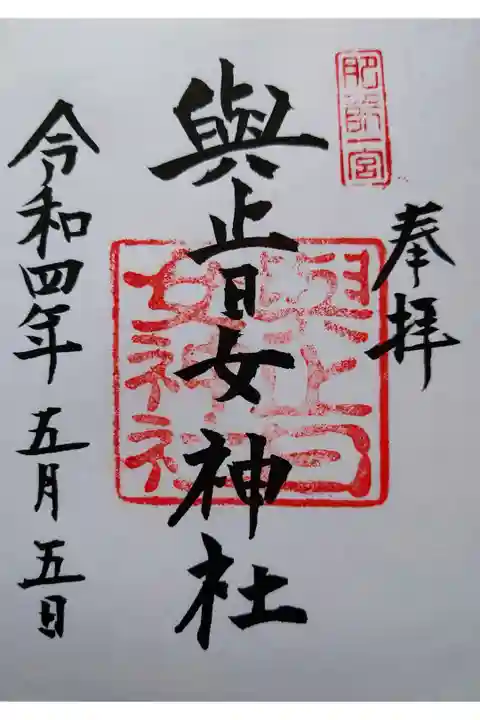 奉拝
肥前一宮
與止日女神社
與止日女神社
令和四年五月五日